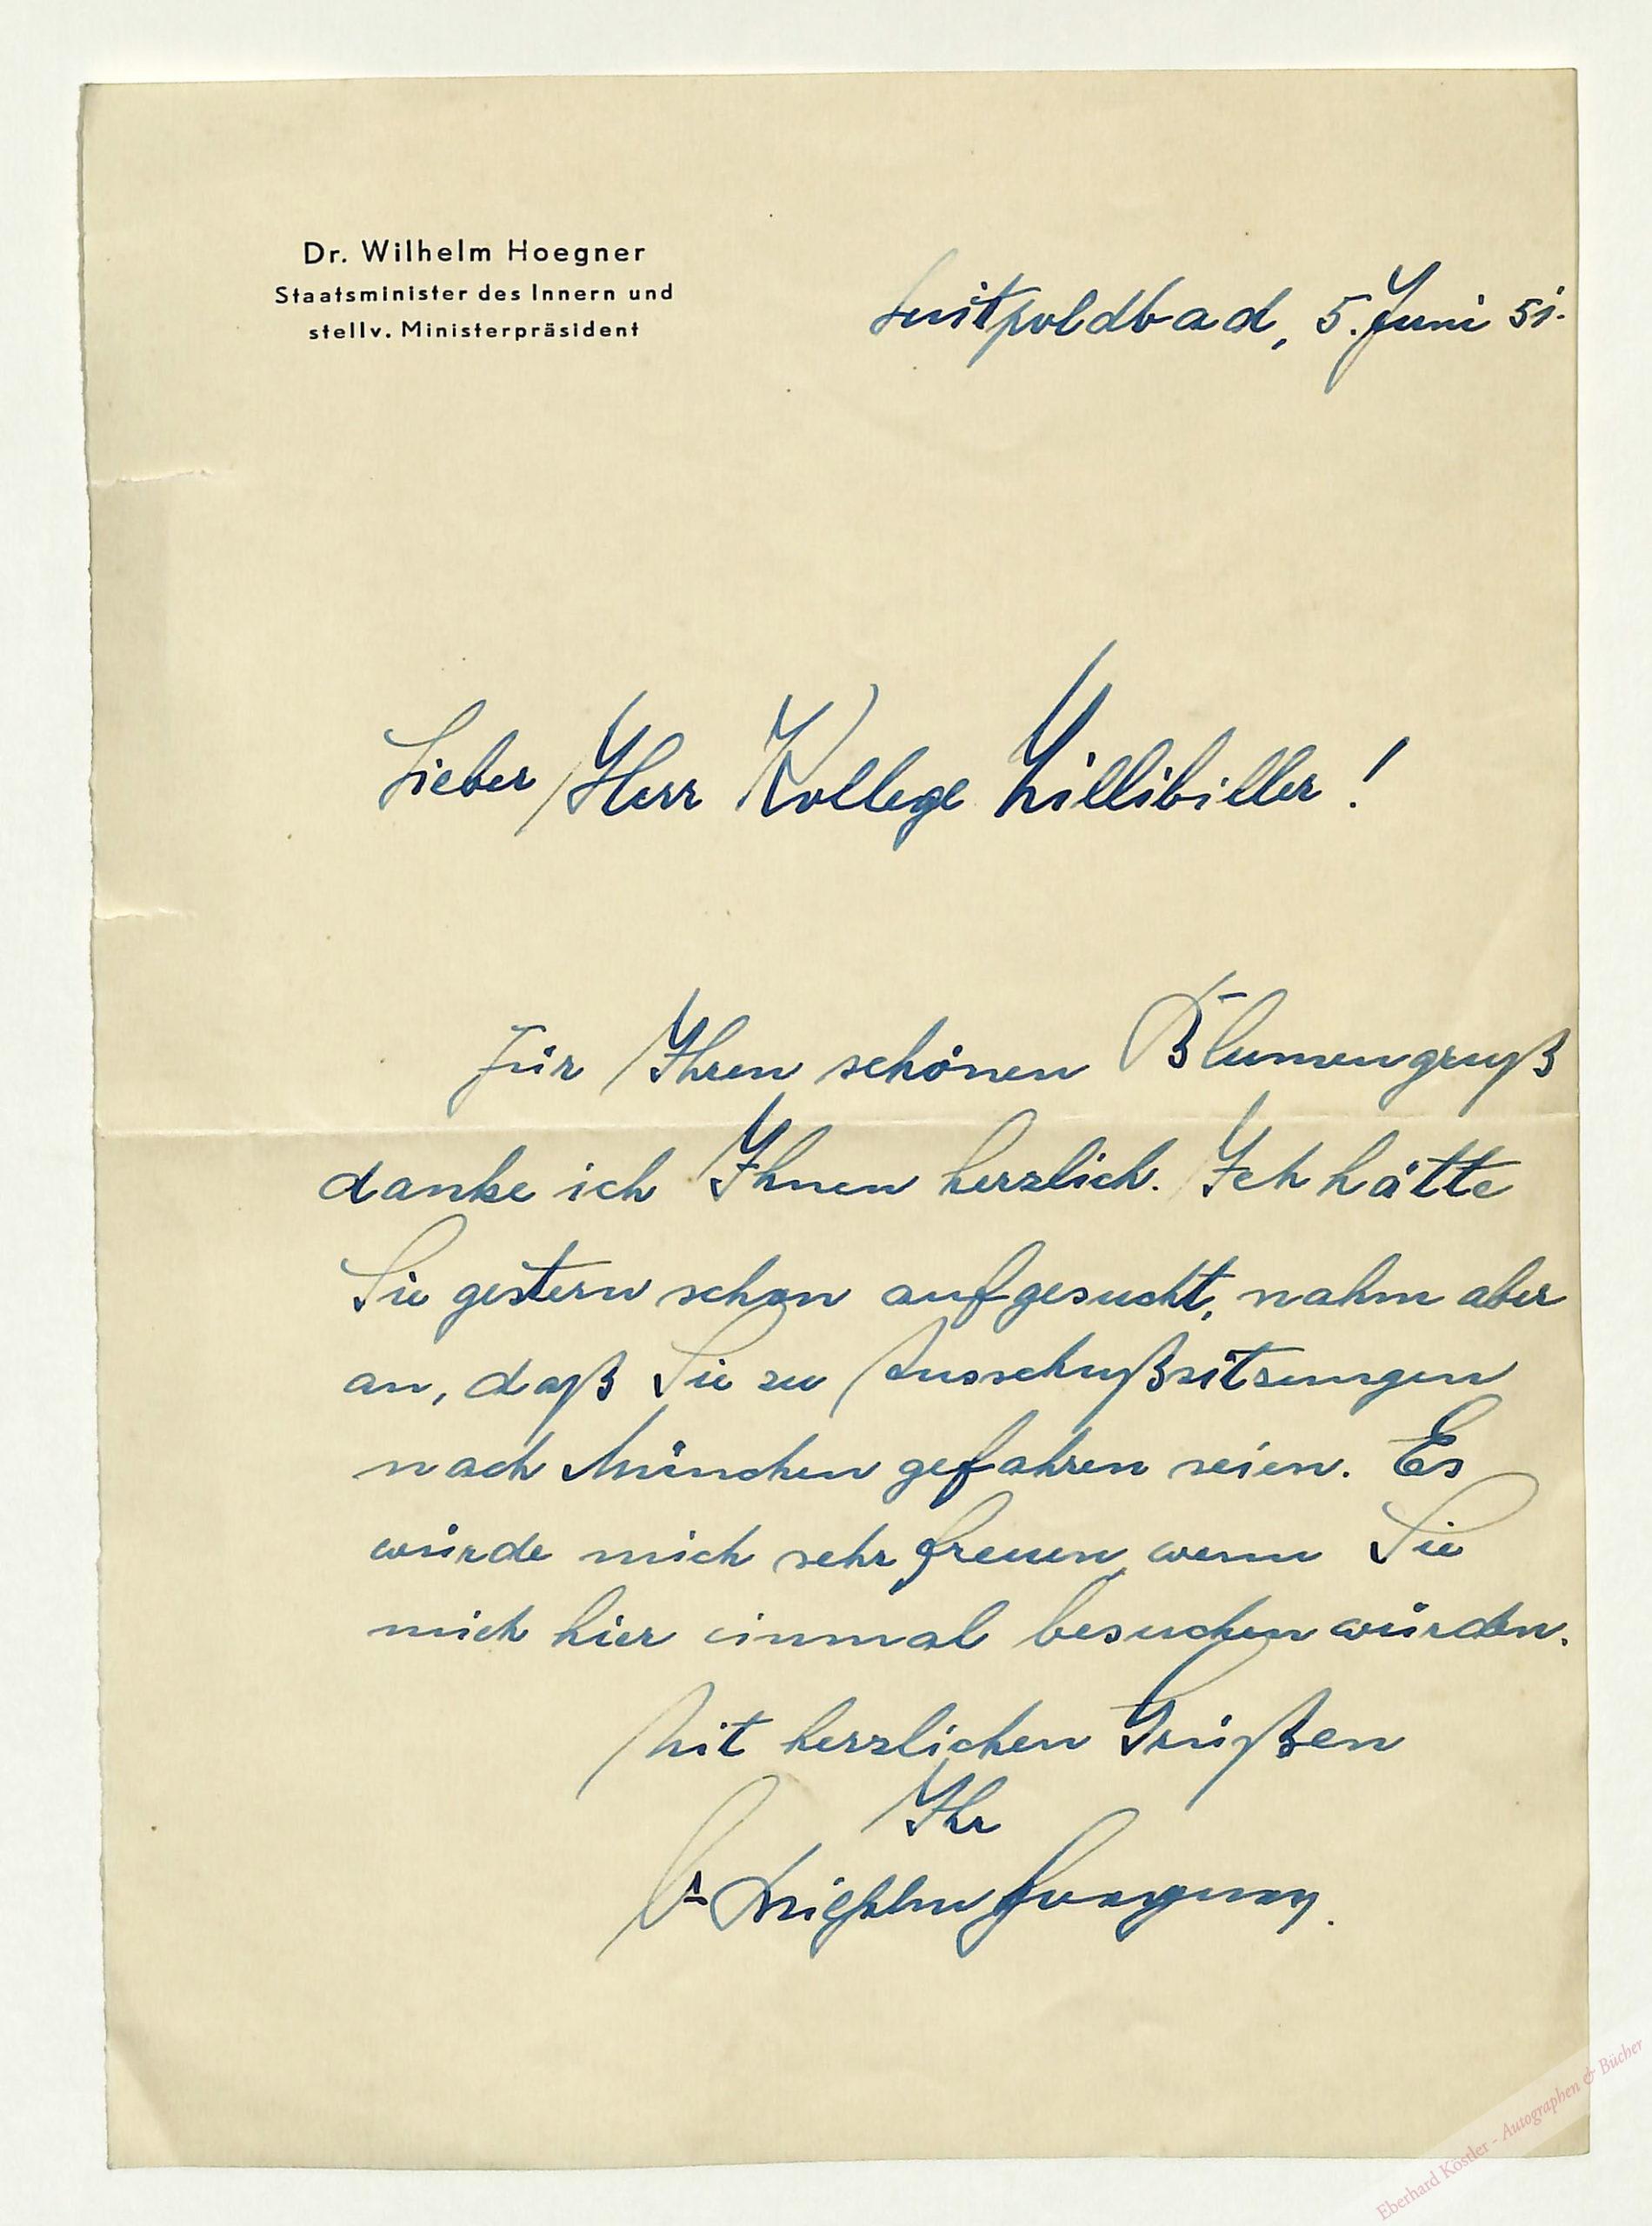 Dr. Wilhelm Hoegner
Staatsminister des Innern und
stellv. Ministerpräsident
Luitpoldbad, 5. Juni 51.
Lieber Herr Kollege Zillibiller!
Für Ihren schönen Blumengruß
danke ich Ihnen herzlich. Ich hätte
Sie gestern schon aufgesucht, nahm aber
an, daß Sie zu Ausschußsitzungen
nach München gefahren seien. Es
würde mich sehr freuen, wenn Sie
mich hier einmal besuchen würden.
Mit herzlichen Grüßen
Ihr
Dr Wilhelm Hoegner.
Eberhard Köstler - Autographen & Bücher